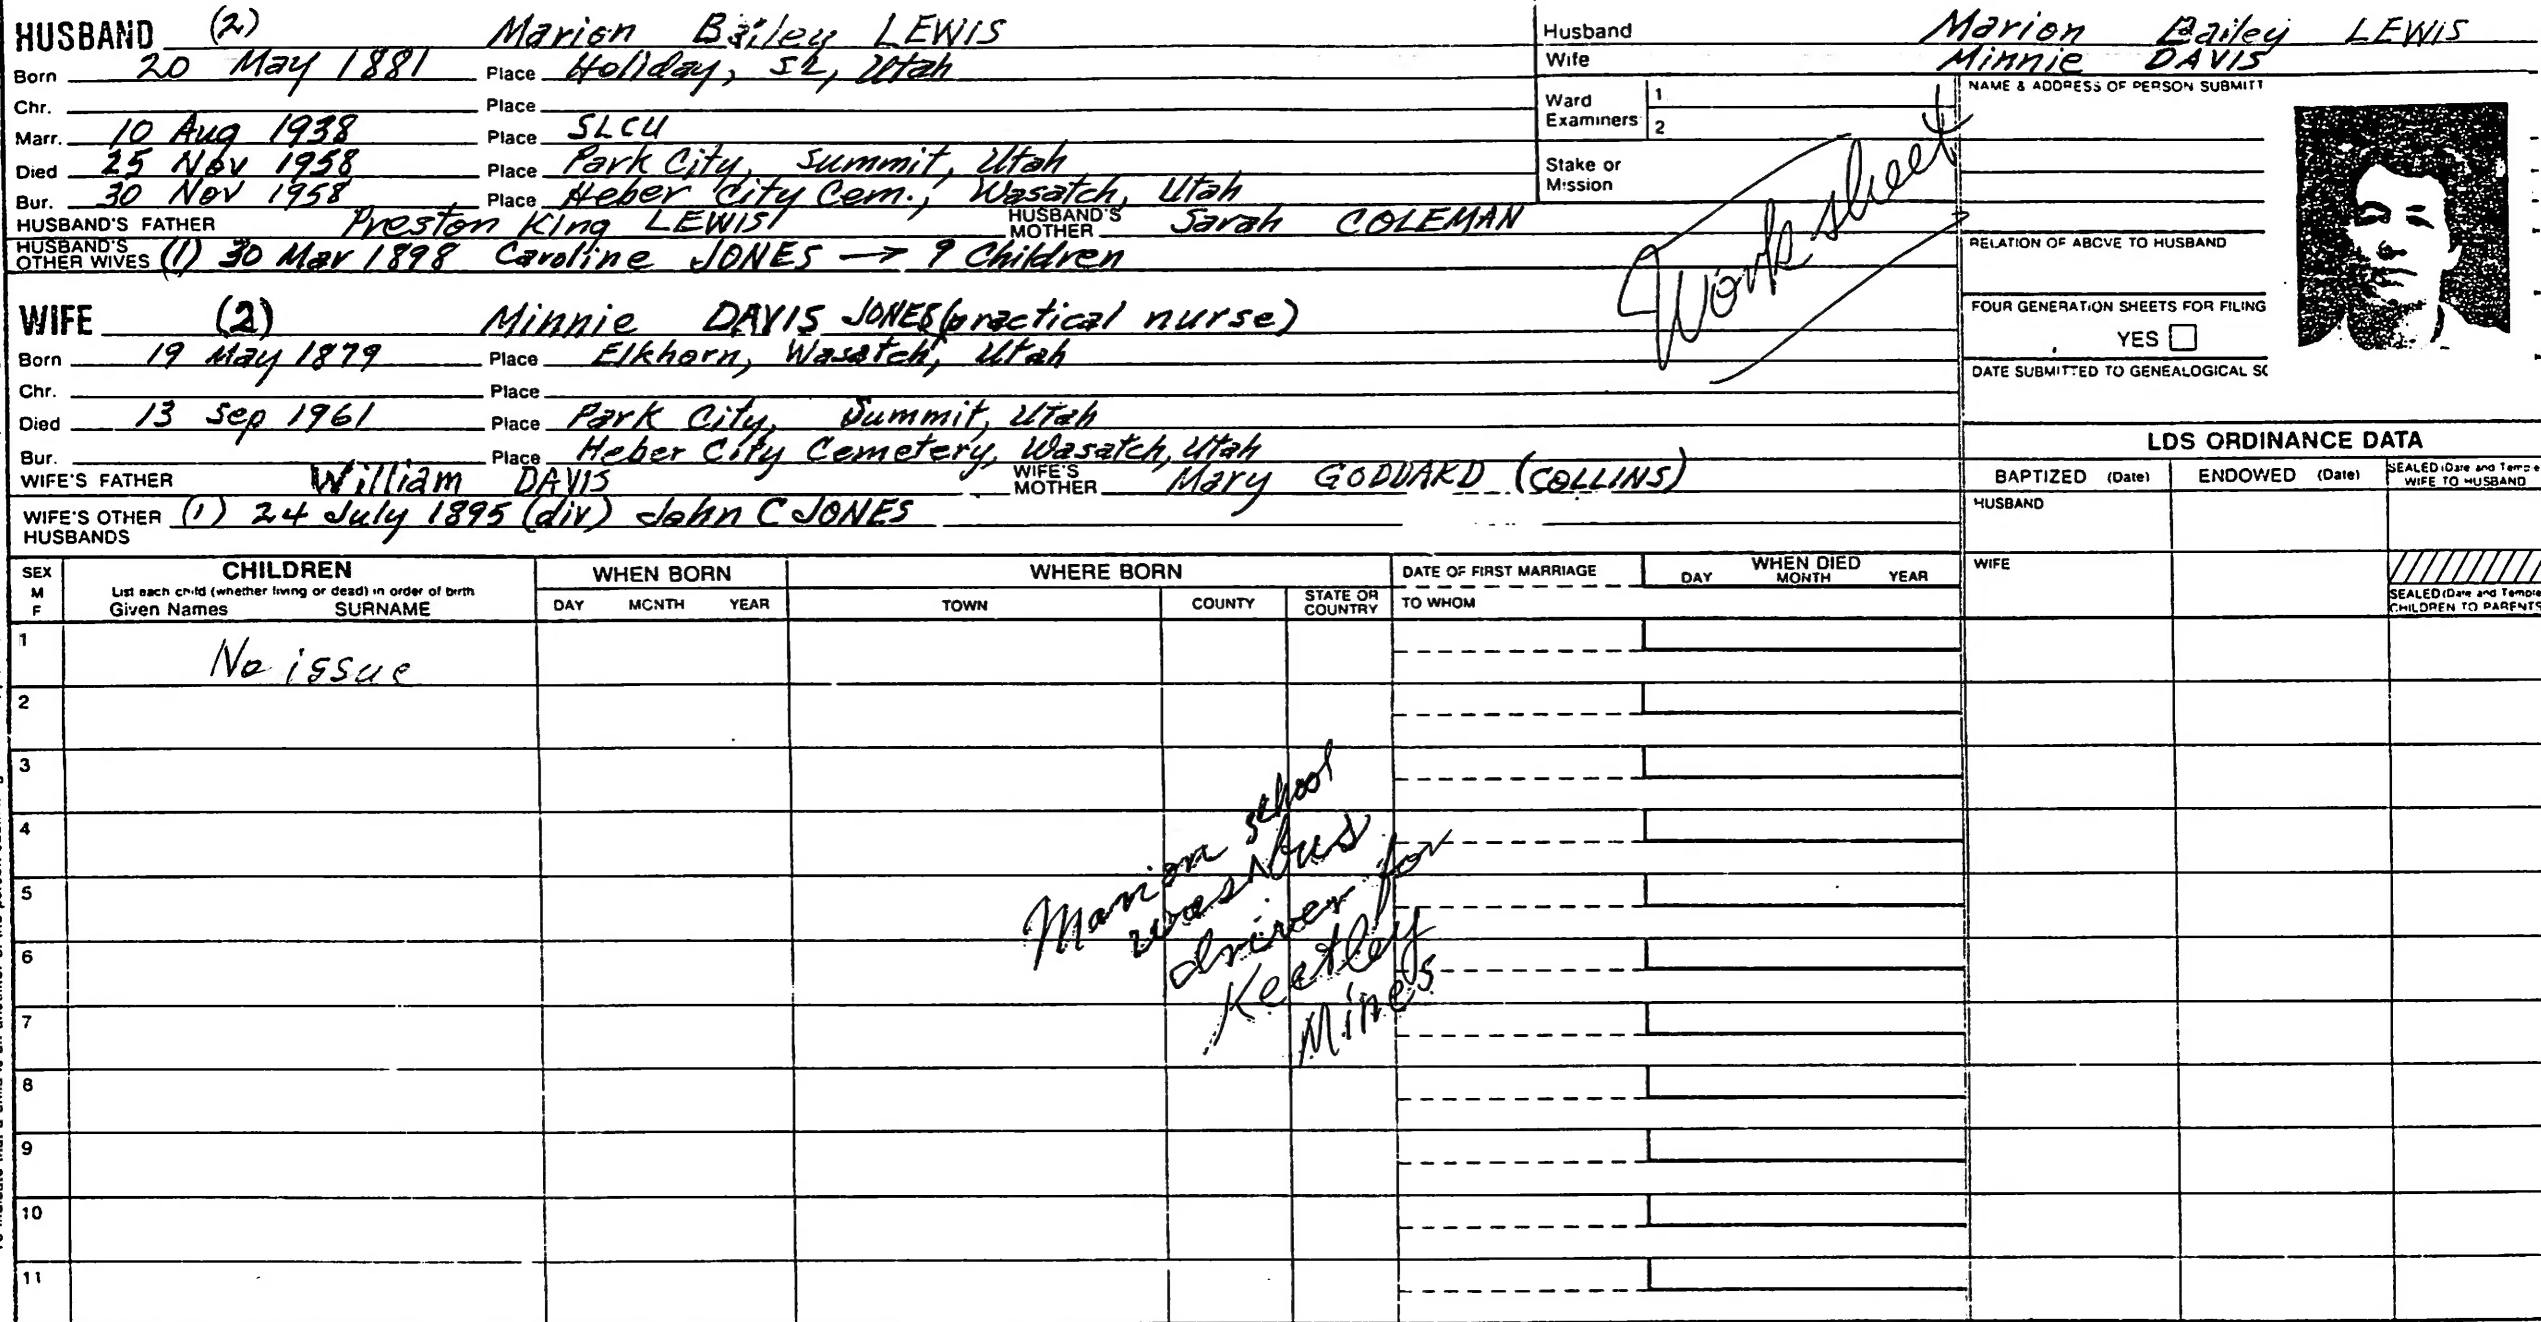 HUSBAND (2) Marion Bailey LEWIS
Born 20 May 1881 Place Holiday, SL, Utah
Chr. Place
Marr. 10 Aug 1938 Place SLCU
Died 25 Nov 1958 Place Park City, Summit, Utah
Bur. 30 Nov 1958 Place Heber City Cem., Wasatch, Utah
HUSBAND'S FATHER Preston King LEWIS HUSBAND'S MOTHER Sarah COLEMAN
HUSBAND'S OTHER WIVES (1) 30 Mar 1898 Caroline JONES → 9 Children
WIFE (2) Minnie DAVIS JONES (practical nurse)
Born 19 May 1879 Place Elkhorn, Wasatch, Utah
Chr. Place
Died 13 Sep 1961 Place Park City, Summit, Utah
Bur. Place Heber City Cemetery, Wasatch, Utah
WIFE'S FATHER William DAVIS WIFE'S MOTHER Mary GODDARD (COLLINS)
WIFE'S OTHER HUSBANDS (1) 24 July 1895 (div) John C JONES
Husband Marion Bailey LEWIS
Wife Minnie DAVIS
Ward Examiners 1
2
Stake or Mission
Work sheet
NAME & ADDRESS OF PERSON SUBMITT
RELATION OF ABOVE TO HUSBAND
FOUR GENERATION SHEETS FOR FILING
YES
DATE SUBMITTED TO GENEALOGICAL SO
LDS ORDINANCE DATA
BAPTIZED (Date) ENDOWED (Date) SEALED (Date and Temple) WIFE TO HUSBAND
HUSBAND
WIFE
SEALED (Date and Temple) CHILDREN TO PARENTS
SEX M F
CHILDREN
List each child (whether living or dead) in order of birth
Given Names SURNAME
WHEN BORN
DAY MONTH YEAR
WHERE BORN
TOWN COUNTY STATE OR COUNTRY
DATE OF FIRST MARRIAGE
TO WHOM
WHEN DIED
DAY MONTH YEAR
1 No issue
2
3
4
5
6
7
8
9
10
11
Marion school
was bus
driver for
Keetley
Mines